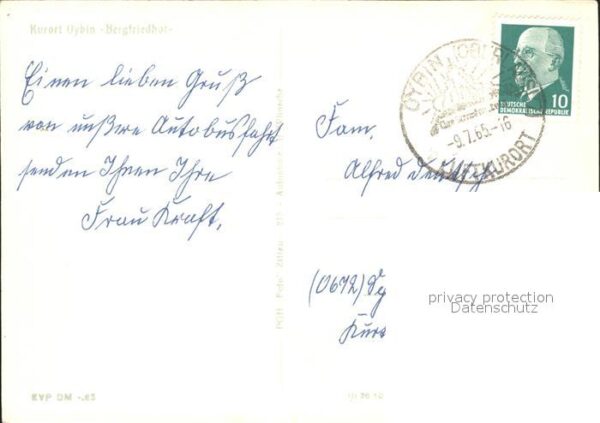 Kurort Oybin - Bergfriedhof -
Einen lieben Gruß
von unßere Autobusfahrt
senden Ihnen Ihre
Frau Kraft.
OYBIN
LUFTKURORT
-9.7.65.-16
DEUTSCHE
DEMOKRATISCHE REPUBLIK
10
Fam.
Alfred Deutsch
(0672)
privacy protection
Datenschutz
EVP DM -.25